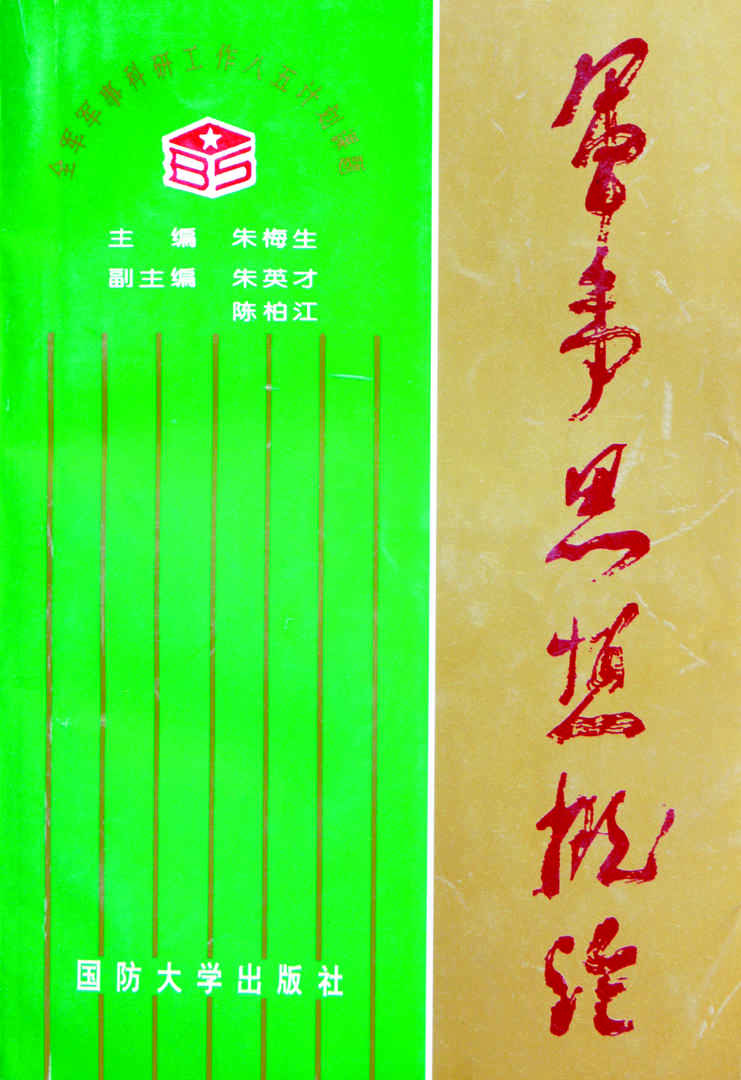 全军军事科研工作八五计划课题
BS
主 编 朱梅生
副主编 朱英才
陈柏江
国防大学出版社
军事思想概论